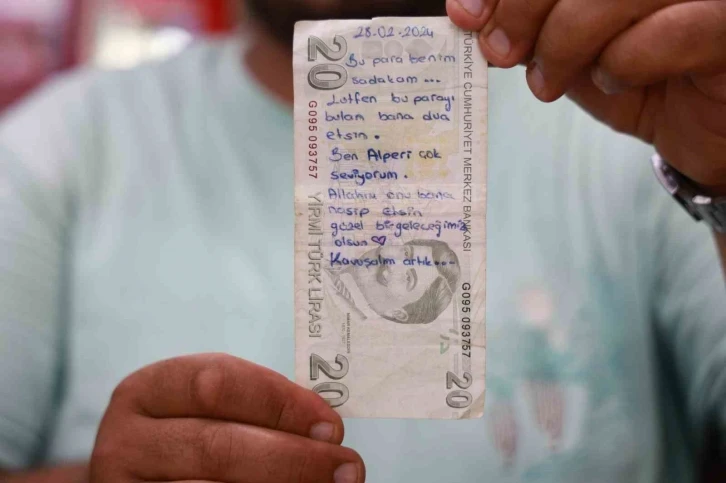 28-02-2024
Bu para benim
sadakam ...
Lütfen bu parayı
bulan bana dua
etsin.
Ben Alperi çok
seviyorum.
Allahım onu bana
nasip etsin
güzel bir geleceğimiz
olsun ♡
Kavuşalım artık...
20
G095 093757
YİRMİ TÜRK LİRASI
20
TÜRKİYE CUMHURİYET MERKEZ BANKASI
G095 093757
20